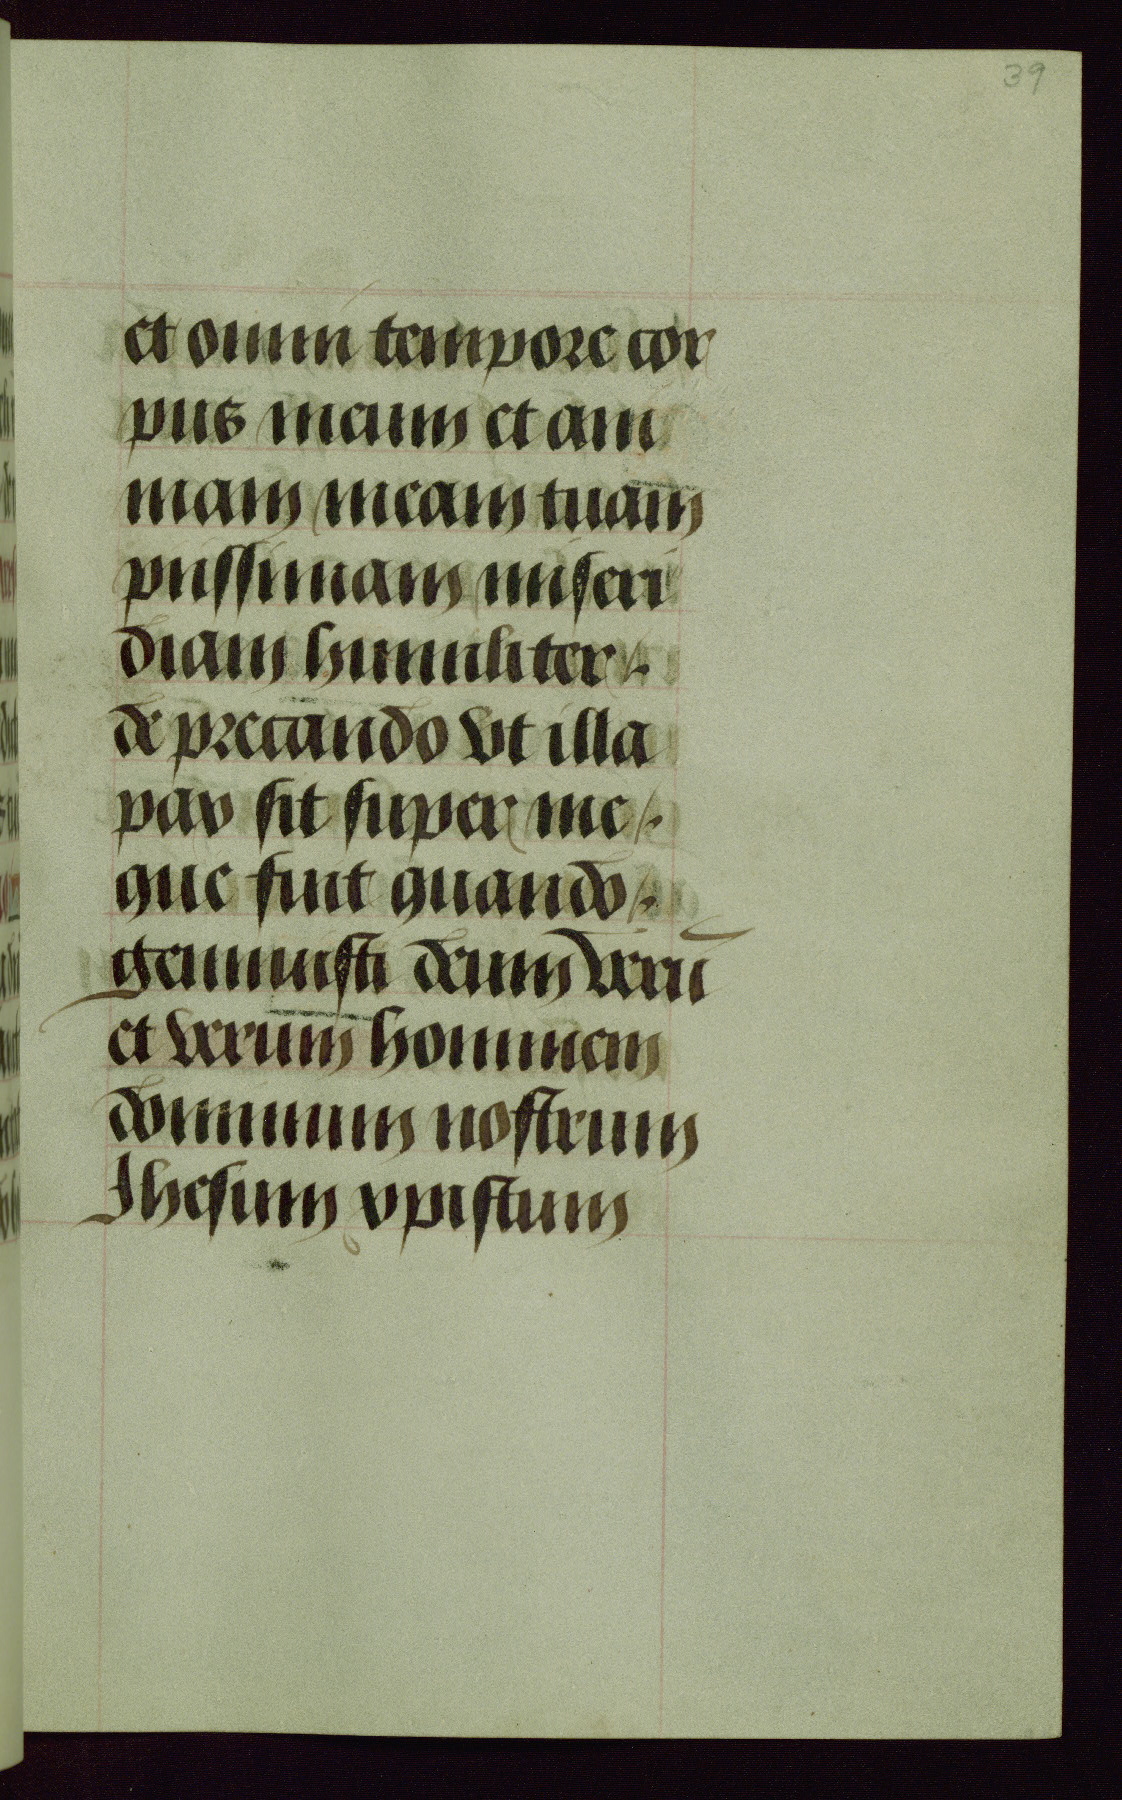 39
et omni tempore cor
pus meum et ani
mam meam tuam
piissimam miseri
diam humiliter
de precando vt illa
pax sit super me
que fuit quando
genuuisti deum verū
et verum hominem
dominum nostrum
Jhesum xpistum